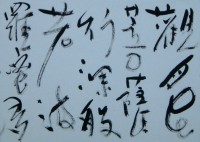 觀自
在菩薩
行深般
若波
羅蜜多